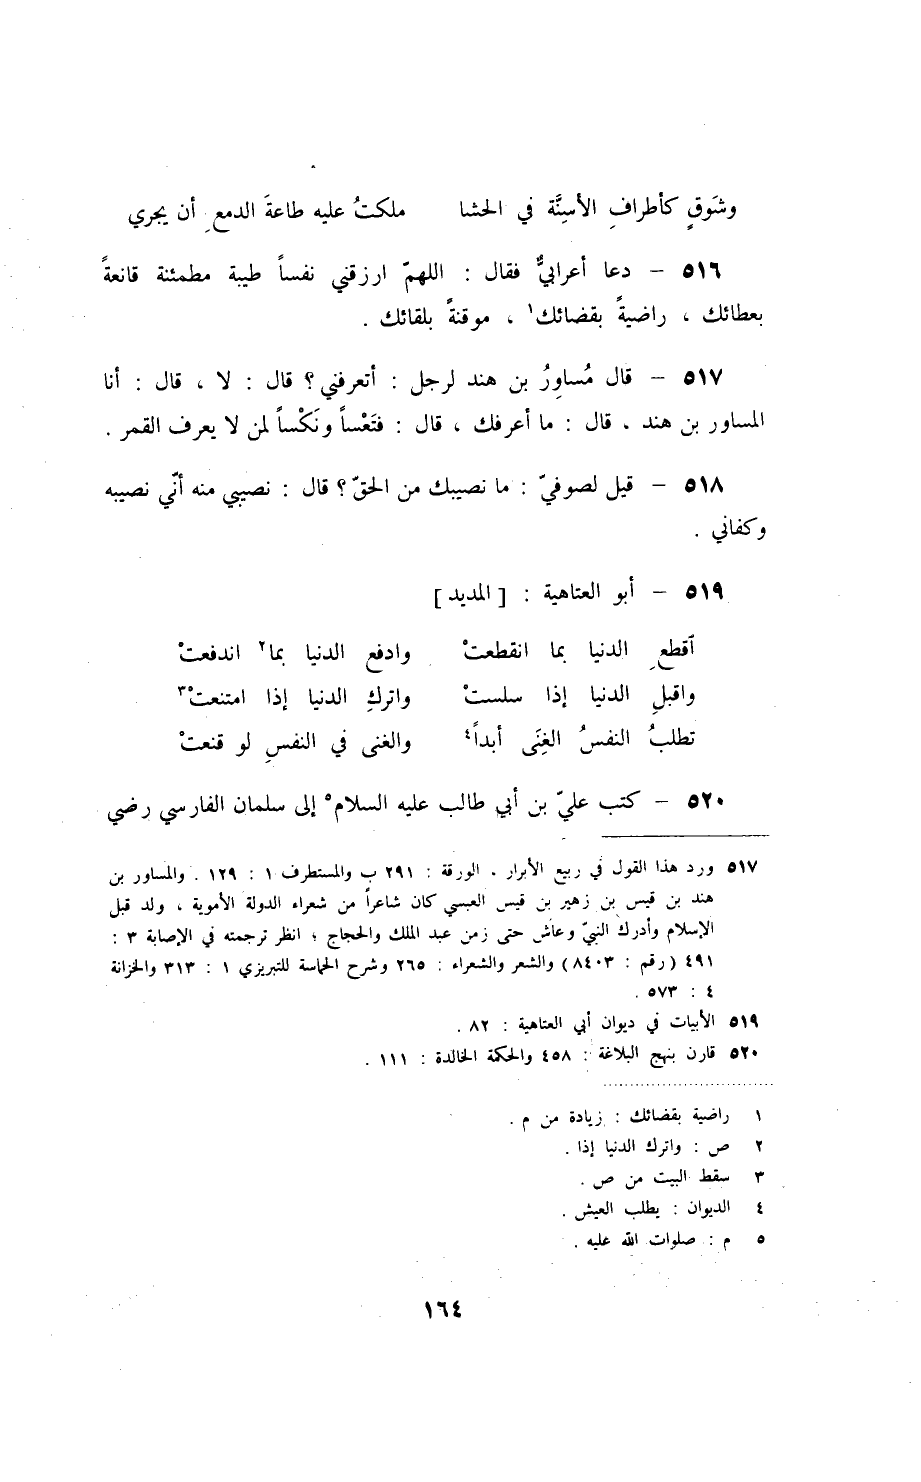 وشَوقٍ كأطرافِ الأسِنَّة في الحشا ملكتُ عليه طاعةَ الدمعِ أن يجري
٥١٦ – دعا أعرابيٌّ فقال : اللهمّ ارزقني نفساً طيبة مطمئنة قانعةً
بعطائك ، راضيةً بقضائك١ ، موقنةً بلقائك .
٥١٧ – قال مُساوِرُ بن هند لرجل : أتعرفني؟ قال : لا ، قال : أنا
المساور بن هند ، قال : ما أعرفك ، قال : فتَعْساً ونَكْساً لمن لا يعرف القمر .
٥١٨ – قيل لصوفيّ : ما نصيبك من الحقّ؟ قال : نصيبي منه أنّي نصيبه
وكفاني .
٥١٩ – أبو العتاهية : [ المديد ]
أقطعِ الدنيا بما انقطعتْ وادفع الدنيا بما٢ اندفعتْ
واقبلِ الدنيا إذا سلستْ واتركِ الدنيا إذا امتنعتْ٣
تطلبُ النفسُ الغِنَى أبداً٤ والغنى في النفسِ لو قنعتْ
٥٢٠ – كتب عليّ بن أبي طالب عليه السلام٥ إلى سلمان الفارسي رضي
٥١٧ ورد هذا القول في ربيع الأبرار ، الورقة : ٢٩١ ب والمستطرف ١ : ١٢٩ . والمساور بن
هند بن قيس بن زهير بن قيس العبسي كان شاعراً من شعراء الدولة الأموية ، ولد قبل
الإسلام وأدرك النبيّ وعاش حتى زمن عبد الملك والحجاج ؛ انظر ترجمته في الإصابة ٣ :
٤٩١ (رقم : ٨٤٠٣) والشعر والشعراء : ٢٦٥ وشرح الحماسة للتبريزي ١ : ٣١٣ والخزانة
٤ : ٥٧٣ .
٥١٩ الأبيات في ديوان أبي العتاهية : ٨٢ .
٥٢٠ قارن بنهج البلاغة : ٤٥٨ والحكمة الخالدة : ١١١ .
١ راضية بقضائك : زيادة من م .
٢ ص : واترك الدنيا إذا .
٣ سقط البيت من ص .
٤ الديوان : يطلب العيش .
٥ م : صلوات الله عليه .
١٦٤